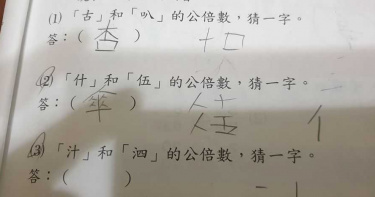 (1)「古」和「叭」的公倍數，猜一字。
答：（杏）十口
(2)「什」和「伍」的公倍數，猜一字。
答：（傘）亻十
亻五
(3)「汁」和「泗」的公倍數，猜一字。
答：（ ）